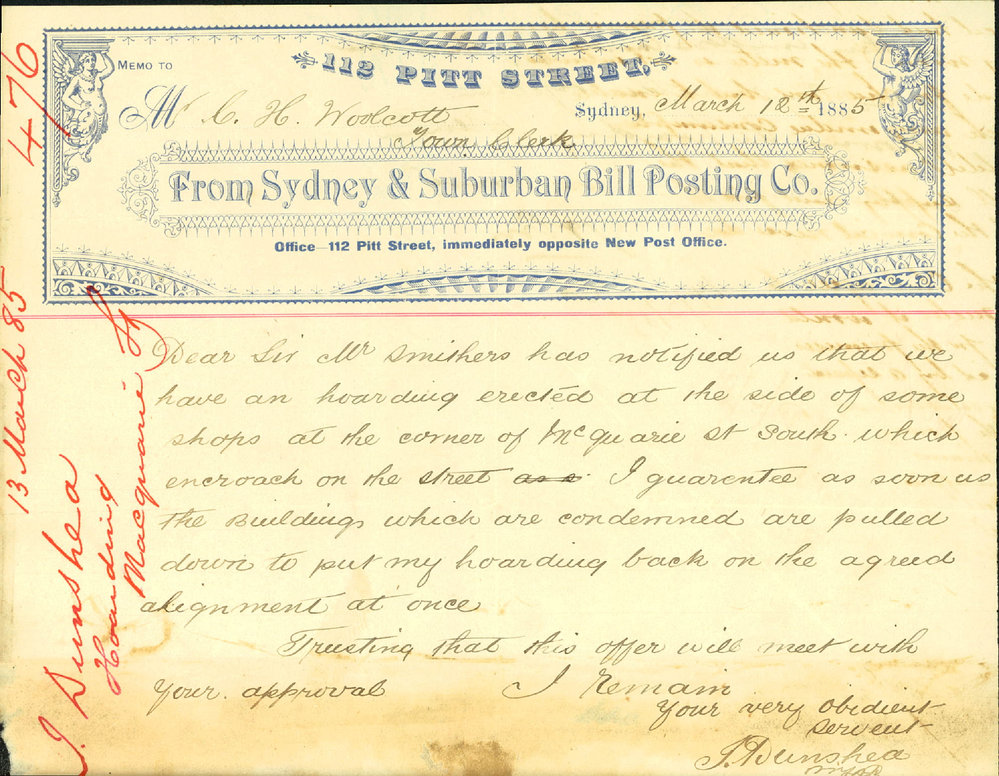 112 PITT STREET,
MEMO TO
M r C. H. Woolcott
Sydney, March 12th 1885
Town Clerk
From Sydney & Suburban Bill Posting Co.
Office—112 Pitt Street, immediately opposite New Post Office.
Dear Sir Mr Smithers has notified us that we
have an hoarding erected at the side of some
shops at the corner of McQuarie st South which
encroach on the street as a I guarentee as soon as
the Buildings which are condemned are pulled
down to put my hoarding back on the agreed
alignment at once
Trusting that this offer will meet with
your approval I Remain
Your very obedient
servent
J. Dunshea
4/76
13 March 85
J. Dunshea
Hoarding
Macquarie St